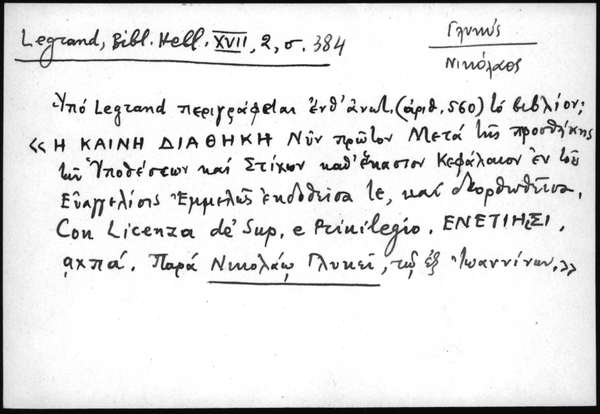 Legrand, Bibl. Hell. XVII, 2, σ. 384
Γλυκύς
Νικόλαος
Ὑπό Legrand περιγράφεται ἔνθ' ἀνωτ. (ἀριθ. 560) τό βιβλίον;
« Η ΚΑΙΝΗ ΔΙΑΘΗΚΗ Νῦν πρῶτον Μετά τῆς προσθήκης
τῶν Ὑποθέσεων καί Στίχων καθ' ἕκαστον Κεφάλαιον ἐν τοῖς
Εὐαγγελίοις Ἐμμελῶς ἐκδοθεῖσα τε, καί διορθωθεῖσα.
Con Licenza de' Sup. e Privilegio. ΕΝΕΤΙΗΣΙ,
αχπά. Παρά Νικολάῳ Γλυκεῖ, τῷ ἐξ Ἰωαννίνων.»